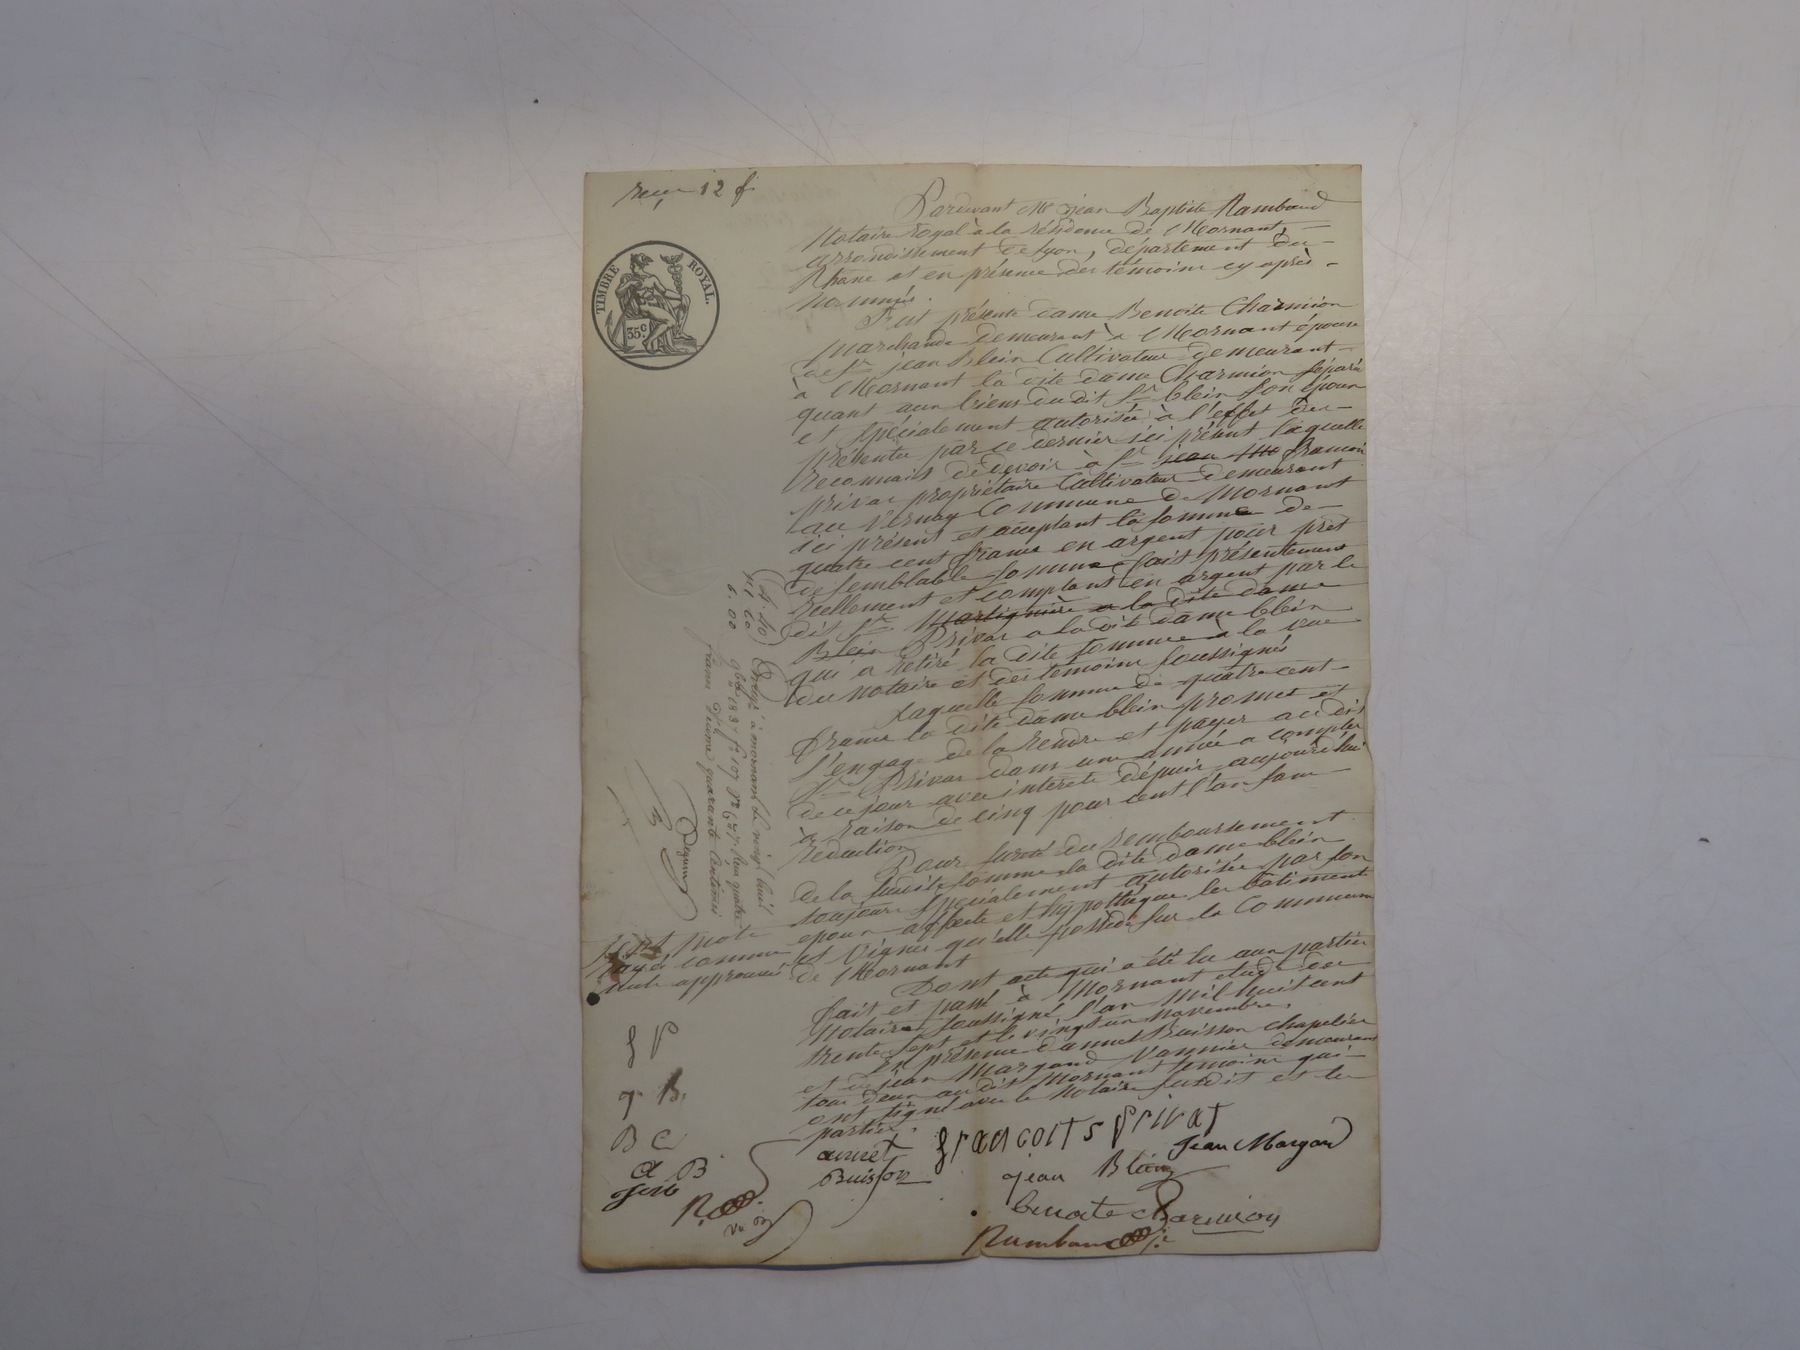 reçu 12 f
TIMBRE ROYAL.
35c
Pardevant Me jean Baptiste Rambaud
Notaire royal à la résidence de Mornant,
arrondissement de lyon, département du
Rhone et en présence des témoins cy après
nommés.
Fut présente dame Benoite Charmion
Marchande demeurant à Mornant épouse
de Sr jean Blein Cultivateur demeurant
à Mornant la dite dame Charmion séparée
quant aux biens du dit Sr blein son époux
et spécialement autorisée à l'effet des
présentes par ce dernier ici présent laquelle
reconnait de devoir à Sr jean francois
privat propriétaire Cultivateur demeurant
au Vernay Commune de Mornant
ici présent et acceptant la somme de
quatre cent francs en argent pour prêt
de semblable somme fait présentement
réellement et comptant en argent par le
dit Sr Martignière a la dite dame
Blein Privat a la dite dame blein
qui a retiré la dite somme à la vue
du notaire et des témoins soussignés
Laquelle somme de quatre cent
francs la dite dame blein promet et
s'engage de la rendre et payer au dit
Sr Privat dans une année a compter
de ce jour avec intérêts dépuis aujourd'hui
à raison de cinq pour cent l'an sans
réduction
Pour sureté du remboursement
de la susdite somme la dite dame blein
toujours spécialement autorisée par son
epoux affecte et hypothèque les bâtiments
et Vignes qu'elle possède sur la Commune
de Mornant
Dont acte qui a été lu aux parties
fait et passé à Mornant etude du
Notaire soussigné l'an mil huit cent
trente sept et le vingt un novembre.
En présence d'annet Buisson chapelier
et de jean Margand Vannier demeurant
tous deux au dit Mornant temoins qui
ont signé avec le Notaire susdit et les
parties.
4. 40
6. 00
Enregé à mornant le vingt huit
9bre 1837 fo 107 Reçu quatre
francs dixieme quarante Centimes
sept mots
rayés comme
nuls approuvés
f P
J B.
B C
a B
annet
Buisson
francois privat
jean Margand
jean Blein
benoite charmion
Rambaud